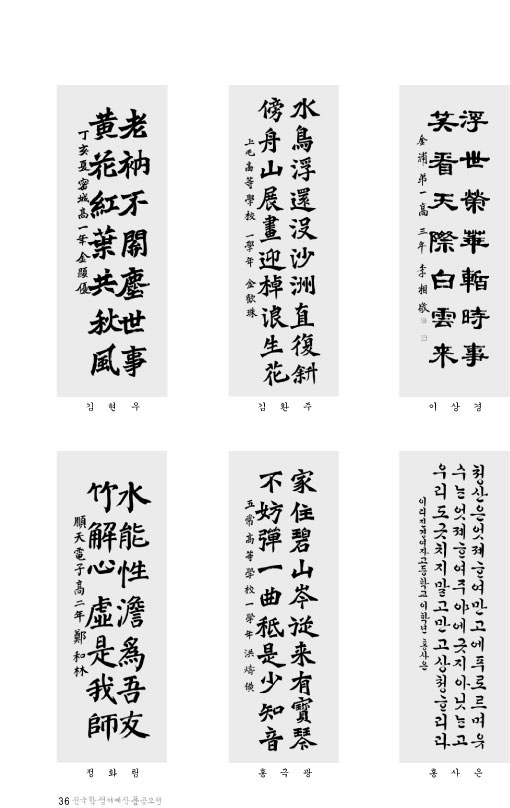 老衲不關塵世事
黃花紅葉共秋風
丁亥夏 密城高一年 金顯優
김현우
水鳥浮還没沙洲直復斜
傍舟山展畫迎棹浪生花
高等學校 一學年 金歡珠
김환주
浮世榮華暫時事
笑看天際白雲来
金浦第一高 三年 李相敬
이상경
水能性澹爲吾友
竹解心虛是我師
順天電子高二年 鄭和林
정화림
家住碧山岑從来有寶琴
不妨彈一曲秪是少知音
五常高等學校 一學年 洪
홍극광
청산은엇졔ᄒᆞ여만고에푸르르며유
수는엇졔ᄒᆞ여주야에긋지아닛는고
우리도긋치지말고만고상청ᄒᆞ리라
여자고등학교이학년 홍사은
홍사은
36 전국학생서예작품공모전